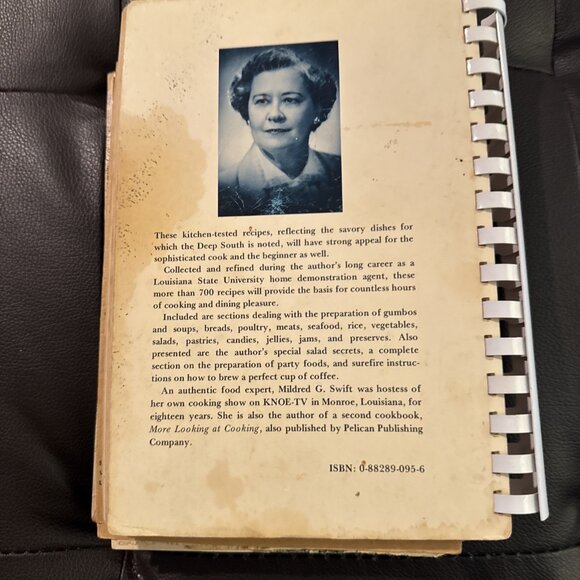 These kitchen-tested recipes, reflecting the savory dishes for
which the Deep South is noted, will have strong appeal for the
sophisticated cook and the beginner as well.
Collected and refined during the author's long career as a
Louisiana State University home demonstration agent, these
more than 700 recipes will provide the basis for countless hours
of cooking and dining pleasure.
Included are sections dealing with the preparation of gumbos
and soups, breads, poultry, meats, seafood, rice, vegetables,
salads, pastries, candies, jellies, jams, and preserves. Also
presented are the author's special salad secrets, a complete
section on the preparation of party foods, and surefire instruc-
tions on how to brew a perfect cup of coffee.
An authentic food expert, Mildred G. Swift was hostess of
her own cooking show on KNOE-TV in Monroe, Louisiana, for
eighteen years. She is also the author of a second cookbook,
More Looking at Cooking, also published by Pelican Publishing
Company.
ISBN: 0-88289-095-6